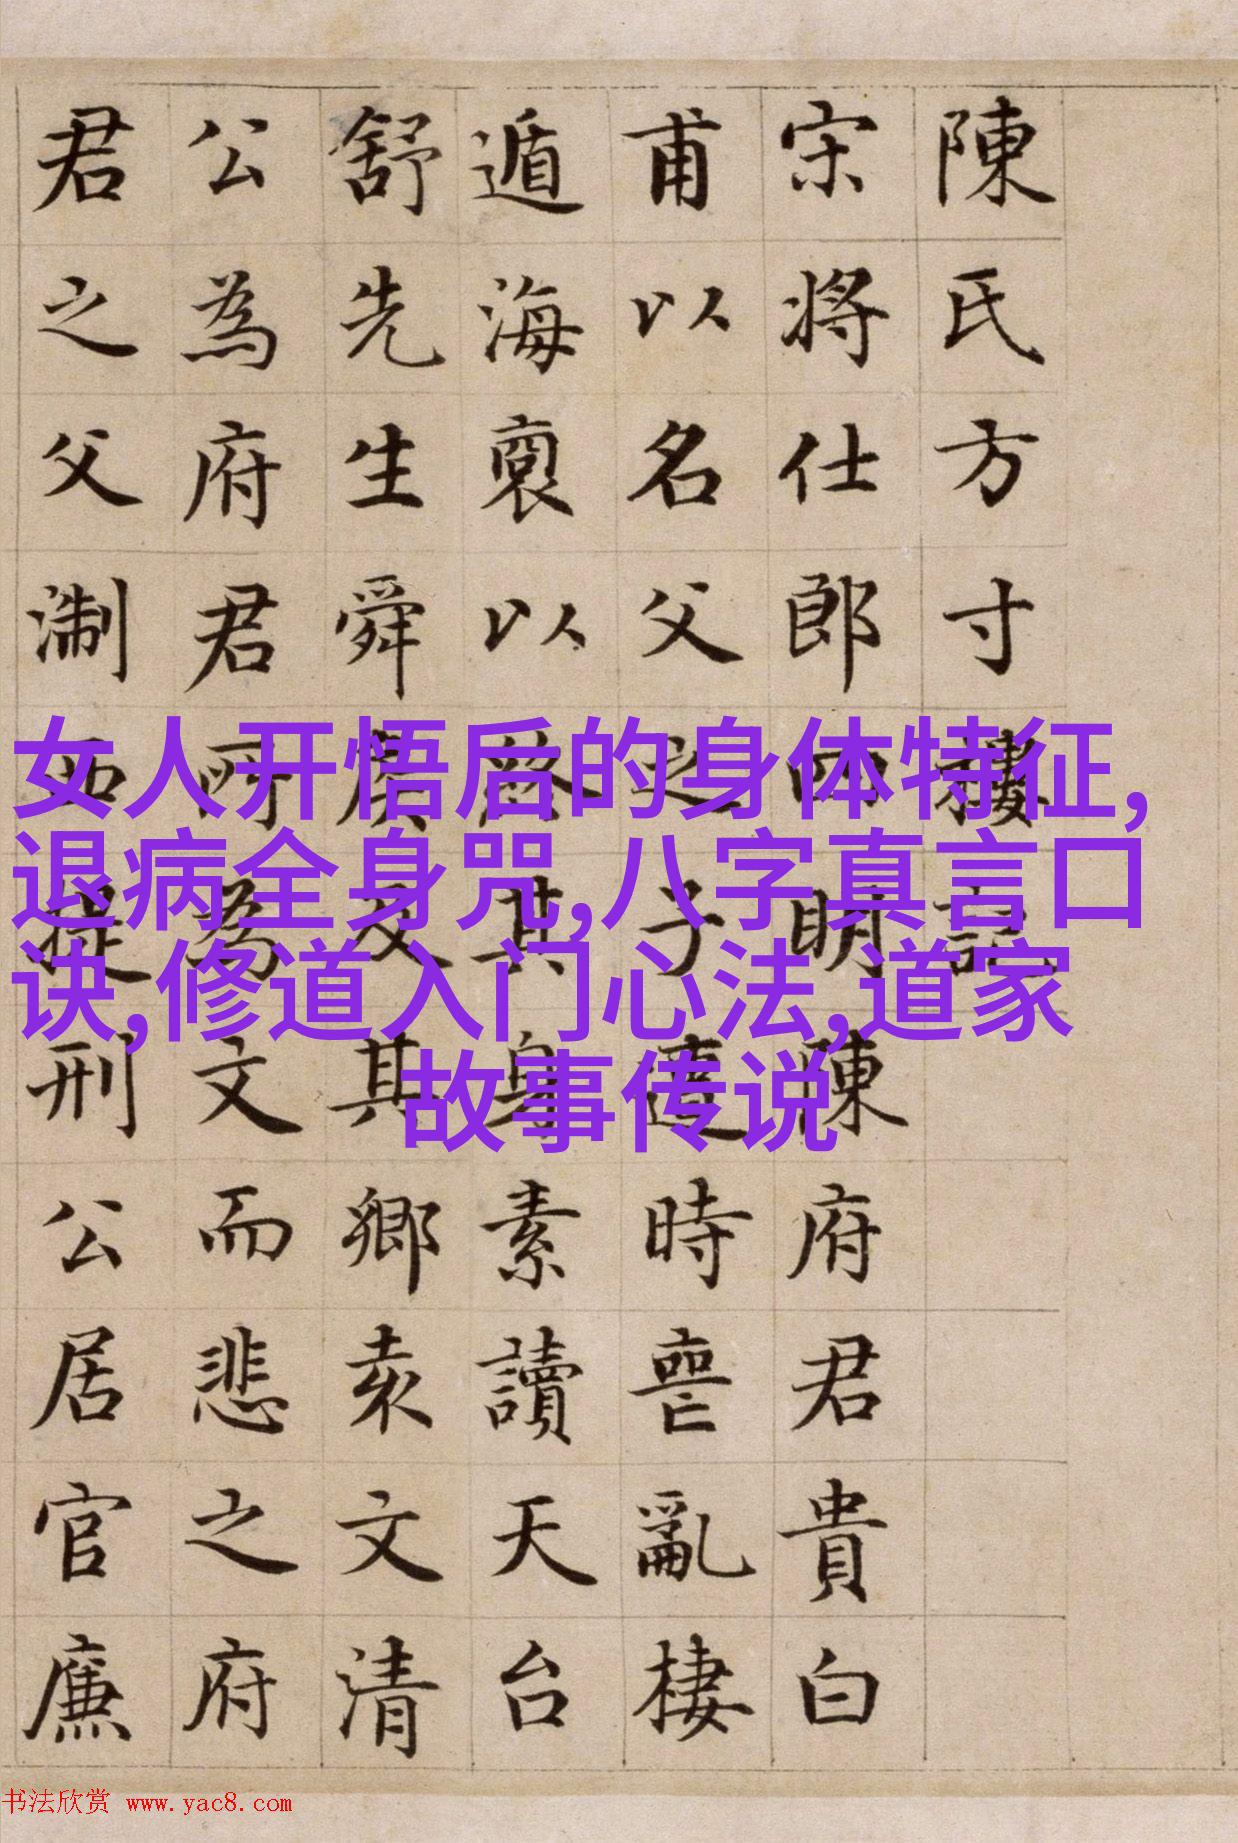 陳氏方寸樓記
宋將仕郎四明陳府君貴白
甫以名父之子遭時喪亂棲
遁海裔以終其身素讀天台
舒先生舜侯及其鄉袁文清
公為府君所為文而悲之府
君之父淛西提刑公居官廉
女人开悟后的身体特征,
退病全身咒,八字真言口
诀,修道入门心法,道家
故事传说
书法欣赏 www.yac8.com